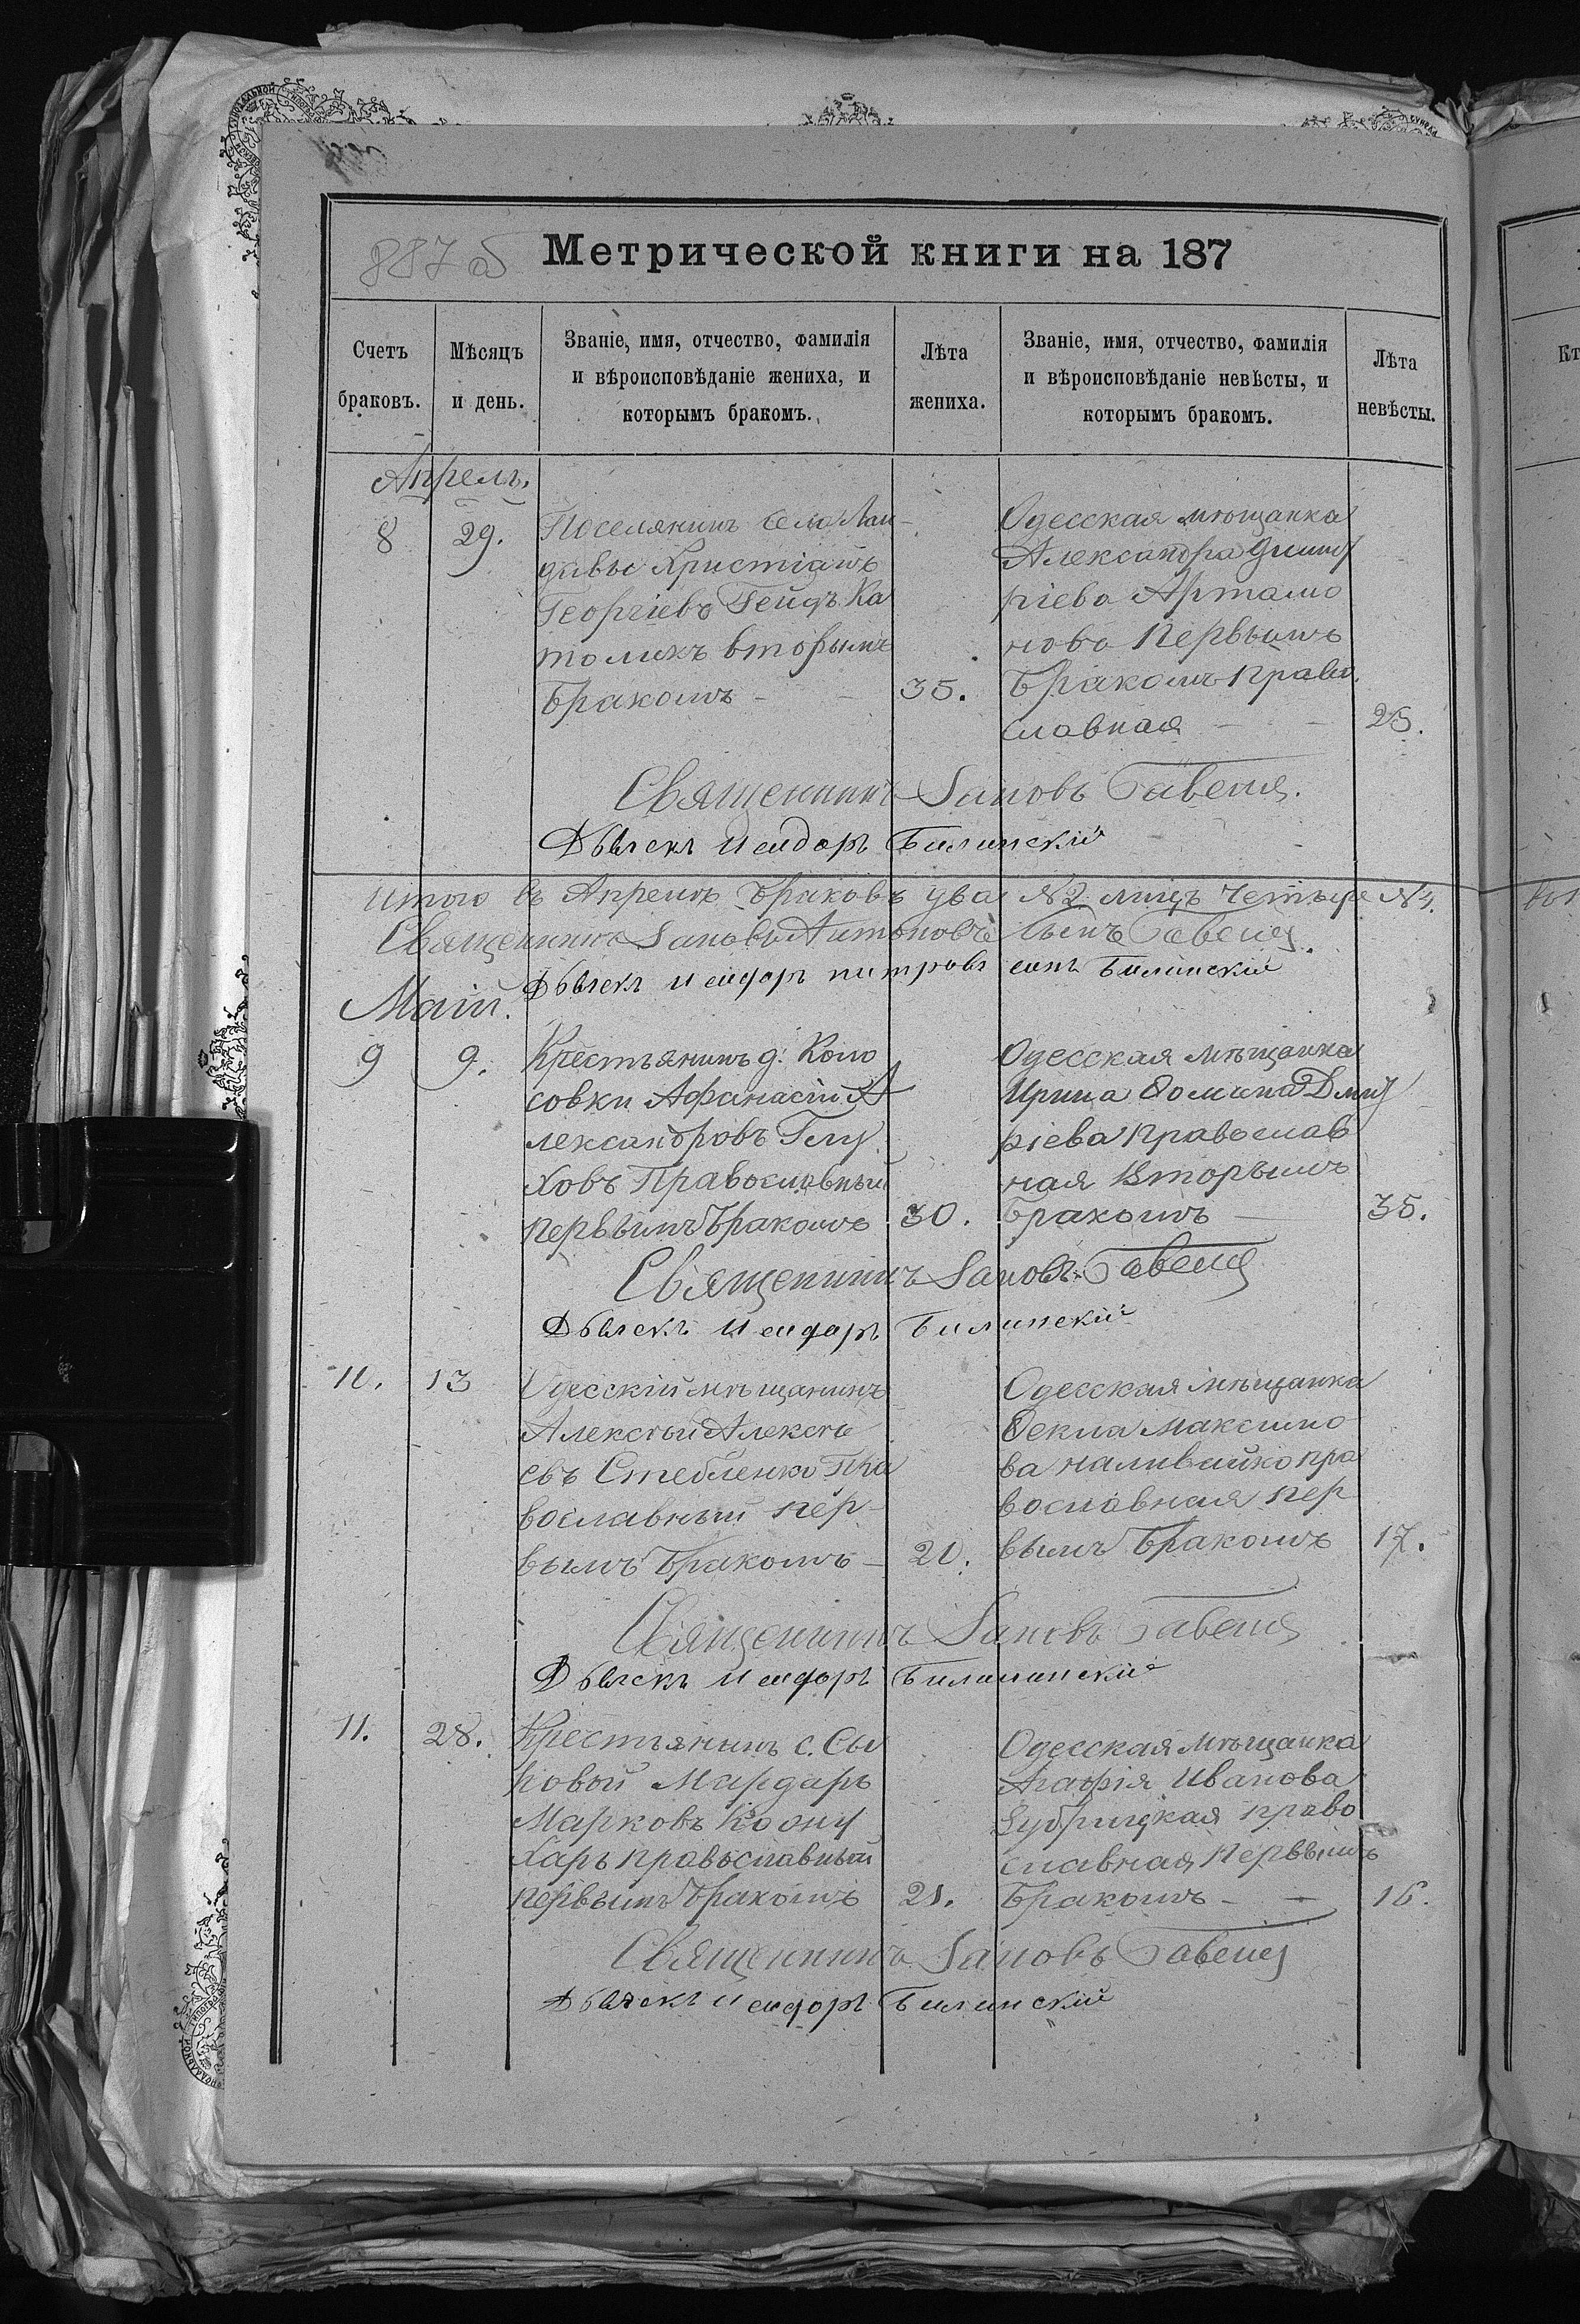 887 об
Метрической книги на 187
Счетъ браковъ.
Мѣсяцъ и день.
Званіе, имя, отчество, фамилія
и вѣроисповѣданіе жениха, и
которымъ бракомъ.
Лѣта жениха.
Званіе, имя, отчество, фамилія
и вѣроисповѣданіе невѣсты, и
которымъ бракомъ.
Лѣта невѣсты.
Апрель.
8
29.
Поселянинъ села Лан-
давы Христіанъ
Георгіевъ Гейдъ Ка
толикъ вторымъ
бракомъ -
35.
Одесская мѣщанка
Александра Димит
ріева Артамо
нова первымъ
бракомъ право
славная -
25.
Священникъ Іаковъ Гавеля.
Дьячекъ Исидоръ Билинскій
Итого въ Апрелѣ браковъ два №2 лицъ четыре №4.
Священникъ Іаковъ Антоновъ сынъ Гавеля.
Дьячекъ Исидоръ питровъ синъ Билинскій
Маій.
9
9.
Крестьянинъ д. Коло
совки Афанасій А
лександровъ Глу
ховъ Православный
первымъ бракомъ
30.
Одесская мѣщанка
Ирина Ѳомина Дмит
ріева православ
ная Вторымъ
бракомъ -
35.
Священникъ Іаковъ Гавеля
Дьячекъ Исидоръ Билинскій
10.
13
Одесскій мѣщанинъ
Алексѣй Алексѣ
евъ Стебленко Пра
вославный пер-
вымъ бракомъ -
20.
Одесская мѣщанка
Ѳекла Максимо
ва Наливайко пра
вославная пер
вымъ бракомъ
17.
Священникъ Іаковъ Гавеля
Дьячекъ Исидоръ Билининскій
11.
28.
Крестьянинъ с. Сы
ровой Мардаръ
Марковъ
харъ православный
первымъ бракомъ
21.
Одесская мѣщанка
Агафія Иванова
Зубрицкая право
славная первымъ
бракомъ - -
16.
Священникъ Іаковъ Гавеля
Дьячекъ Исидоръ Билинскій